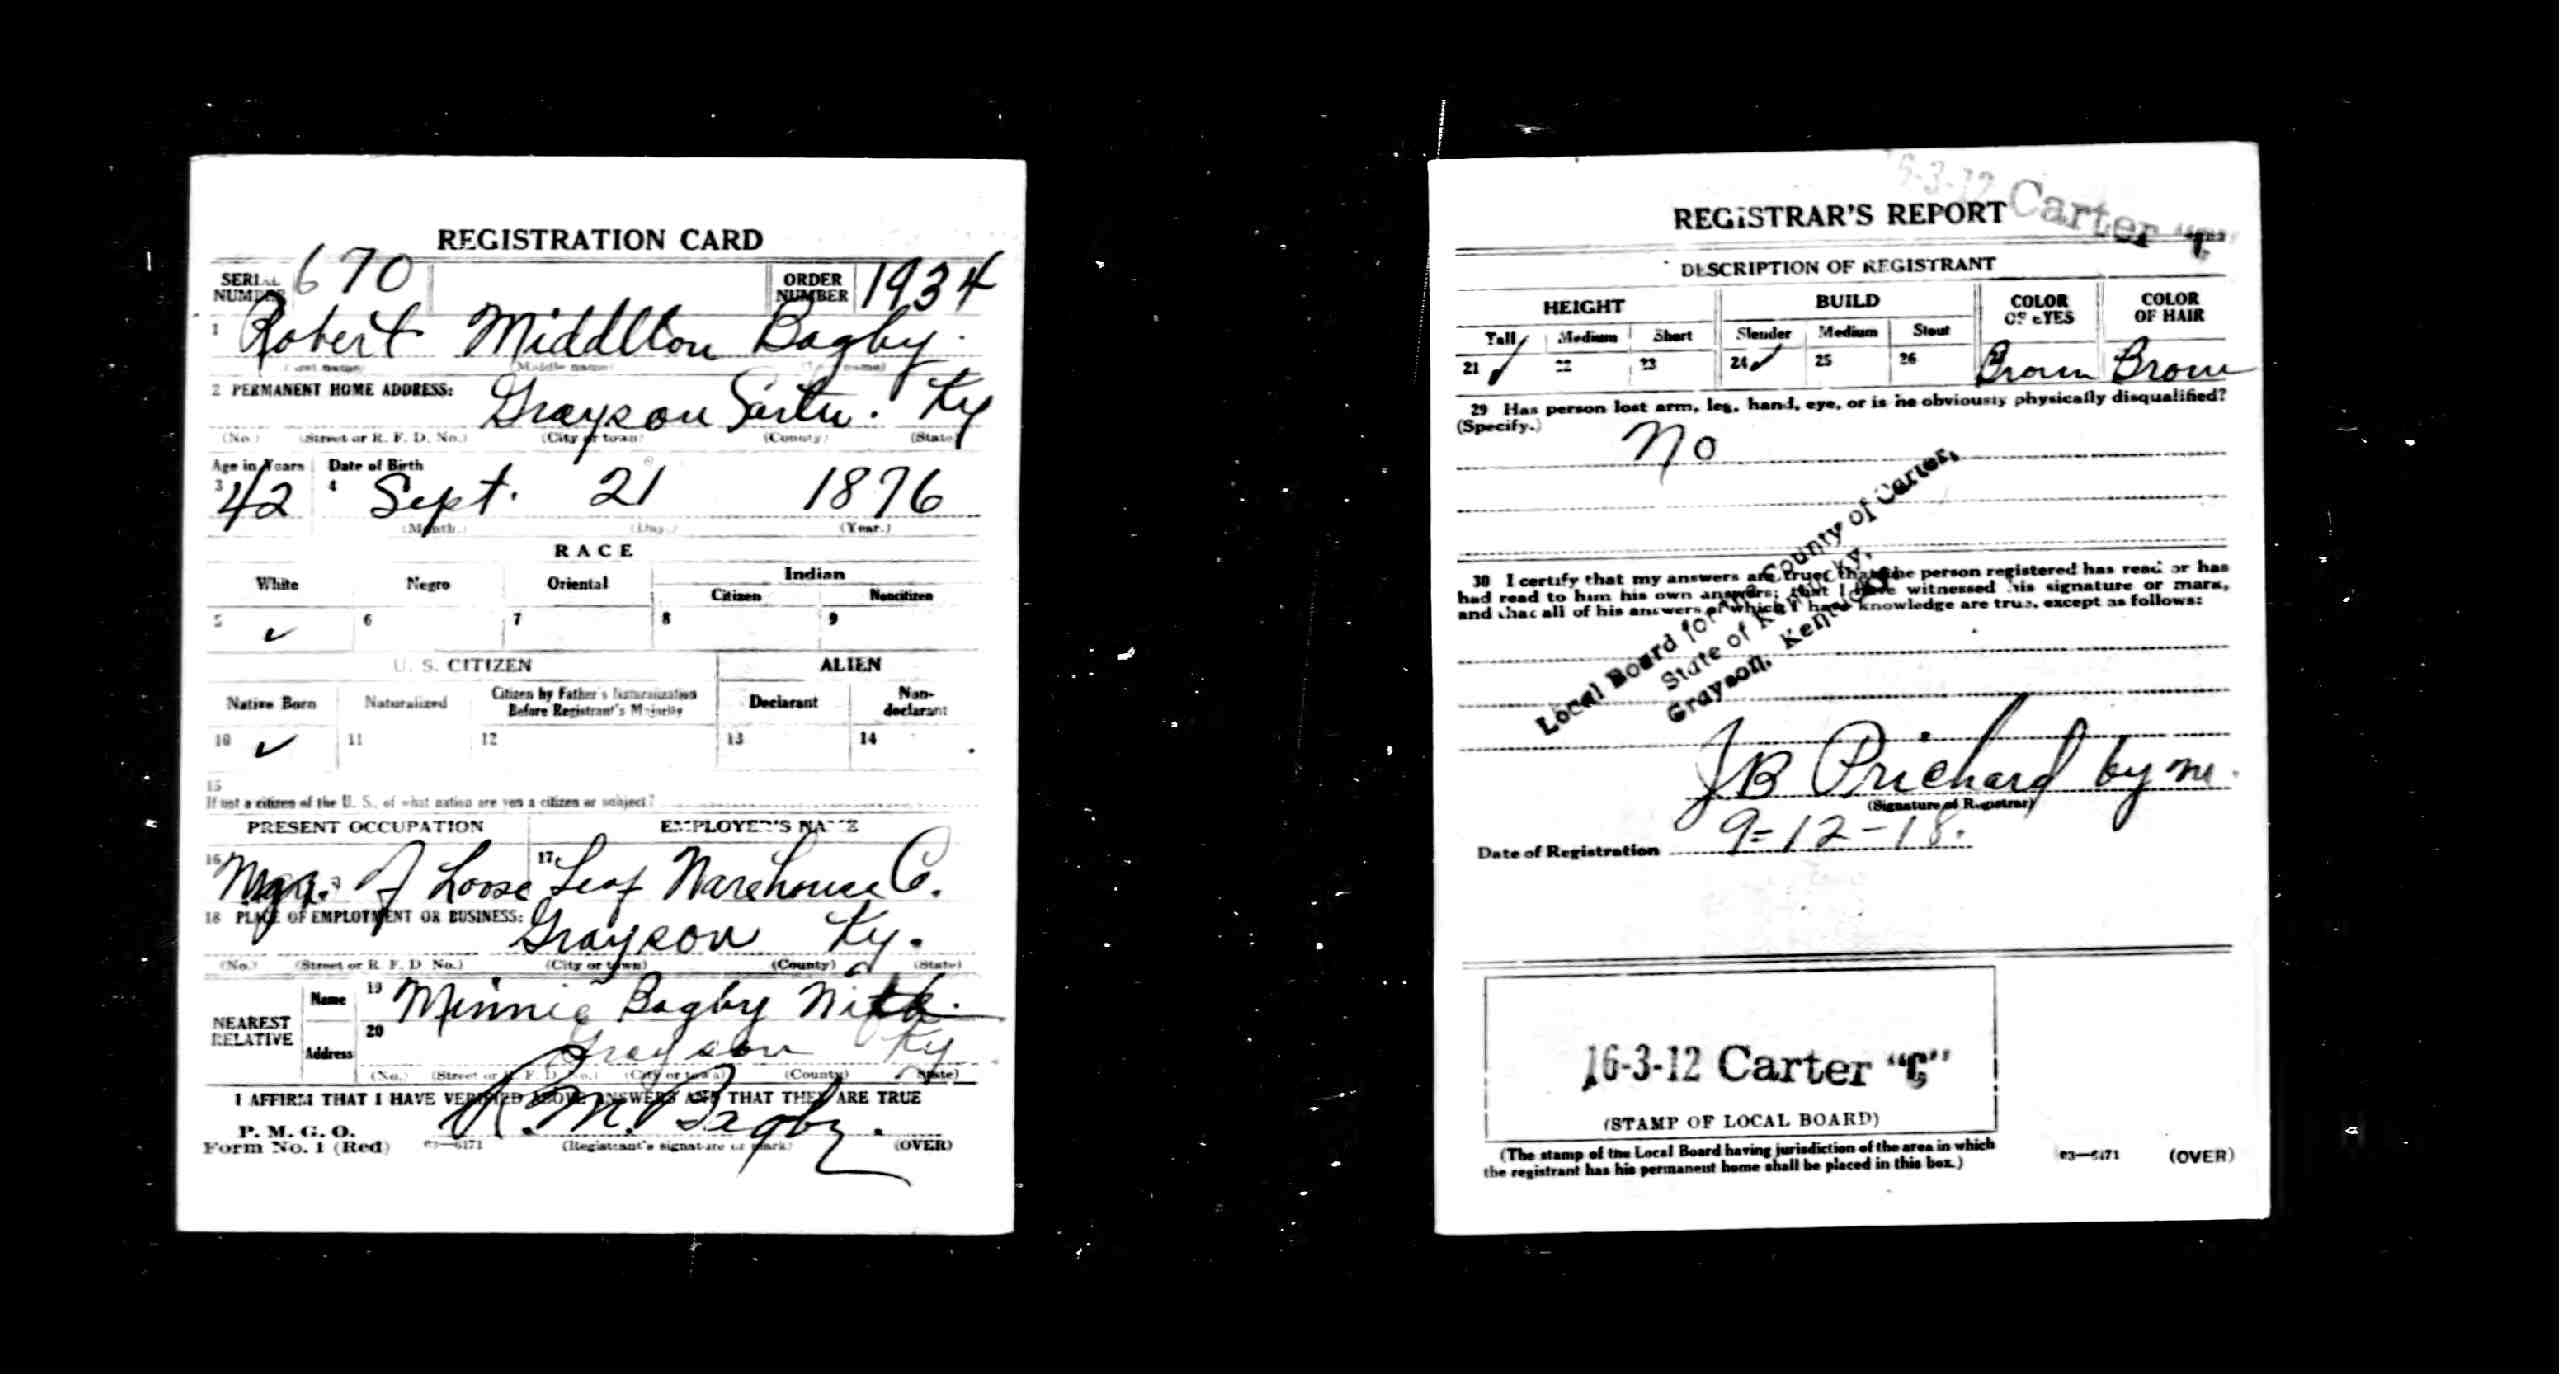 REGISTRATION CARD
SERIAL NUMBER 670 ORDER NUMBER 1934
1 Robert Middleton Bagby.
(First name) (Middle name) (Last name)
2 PERMANENT HOME ADDRESS:
Grayson Carter. Ky
(No.) (Street or R. F. D. No.) (City or town) (County) (State)
Age in Years Date of Birth
3 42 4 Sept. 21 1876
(Month.) (Day.) (Year.)
RACE
White Negro Oriental Indian
Citizen Noncitizen
5 ✓ 6 7 8 9
U. S. CITIZEN ALIEN
Native Born Naturalized Citizen by Father's Naturalization Before Registrant's Majority Declarant Non-declarant
10 ✓ 11 12 13 14
15
If not a citizen of the U. S., of what nation are you a citizen or subject?
PRESENT OCCUPATION EMPLOYER'S NAME
16 Mgr. of Loose 17 Leaf Warehouse Co.
18 PLACE OF EMPLOYMENT OR BUSINESS:
Grayson Ky.
(No.) (Street or R. F. D. No.) (City or town) (County) (State)
NEAREST RELATIVE
Name 19 Minnie Bagby
Address 20 Grayson Ky
(No.) (Street or R. F. D. No.) (City or town) (County) (State)
I AFFIRM THAT I HAVE VERIFIED ABOVE ANSWERS AND THAT THEY ARE TRUE
P. M. G. O.
Form No. 1 (Red) 03—6171 R. M. Bagby.
(Registrant's signature or mark) (OVER)
16-3-12 Carter "C"
REGISTRAR'S REPORT
DESCRIPTION OF REGISTRANT
HEIGHT BUILD COLOR OF EYES COLOR OF HAIR
Tall Medium Short Slender Medium Stout
21 ✓ 22 23 24 ✓ 25 26 27 Brown Brown
29 Has person lost arm, leg, hand, eye, or is he obviously physically disqualified?
(Specify.)
No
30 I certify that my answers are true; that the person registered has read or has
had read to him his own answers; that I have witnessed his signature or mark,
and that all of his answers of which I have knowledge are true, except as follows:
Local Board for the County of Carter,
State of Kentucky,
Grayson, Kentucky
J B Prichard by m.
(Signature of Registrar)
Date of Registration 9-12-18.
16-3-12 Carter "C"
(STAMP OF LOCAL BOARD)
(The stamp of the Local Board having jurisdiction of the area in which
the registrant has his permanent home shall be placed in this box.)
03—6171 (OVER)